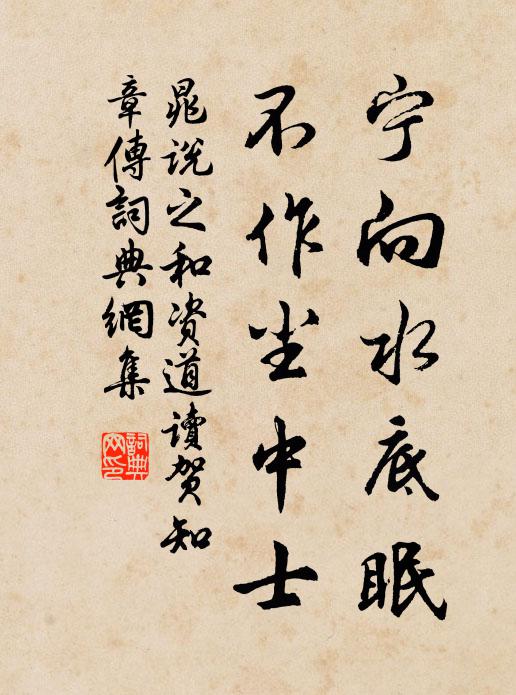 宁向水底眠
不作尘中士
晁说之和资道读贺知
章傳詞典網集
詞典
网印